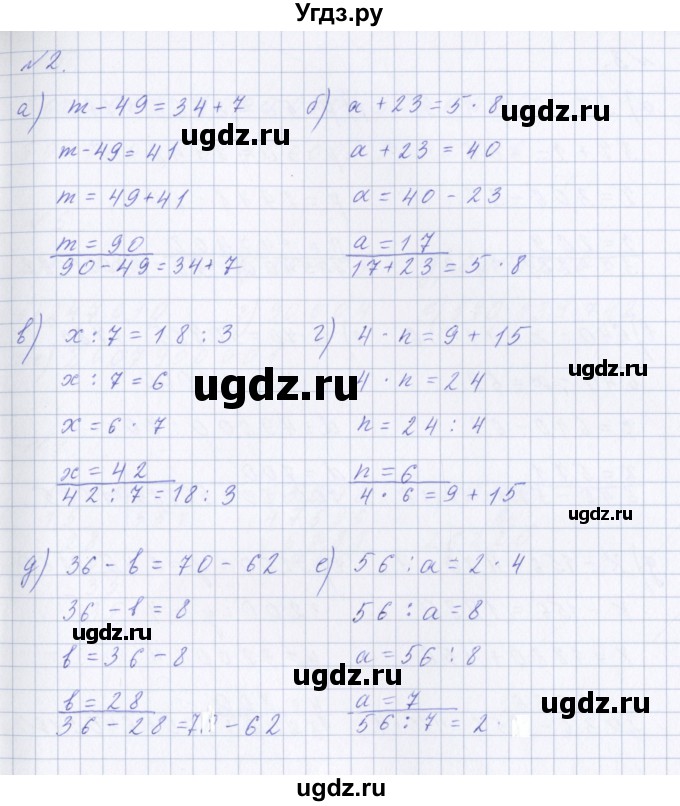 Угдз.ру
№2.
а) m - 49 = 34 + 7
m - 49 = 41
m = 49 + 41
m = 90
90 - 49 = 34 + 7
б) a + 23 = 5 · 8
a + 23 = 40
a = 40 - 23
a = 17
17 + 23 = 5 · 8
ugdz.ru
ugdz.ru
в) x : 7 = 18 : 3
x : 7 = 6
x = 6 · 7
x = 42
42 : 7 = 18 : 3
г) 4 · n = 9 + 15
4 · n = 24
n = 24 : 4
n = 6
4 · 6 = 9 + 15
ugdz.ru
ugdz.ru
ugdz.ru
д) 36 - b = 70 - 62
36 - b = 8
b = 36 - 8
b = 28
36 - 28 = 7 - 62
е) 56 : a = 2 · 4
56 : a = 8
a = 56 : 8
a = 7
56 : 7 = 2 ·
ugdz.ru
ugdz.ru
ugdz.ru
ugdz.ru